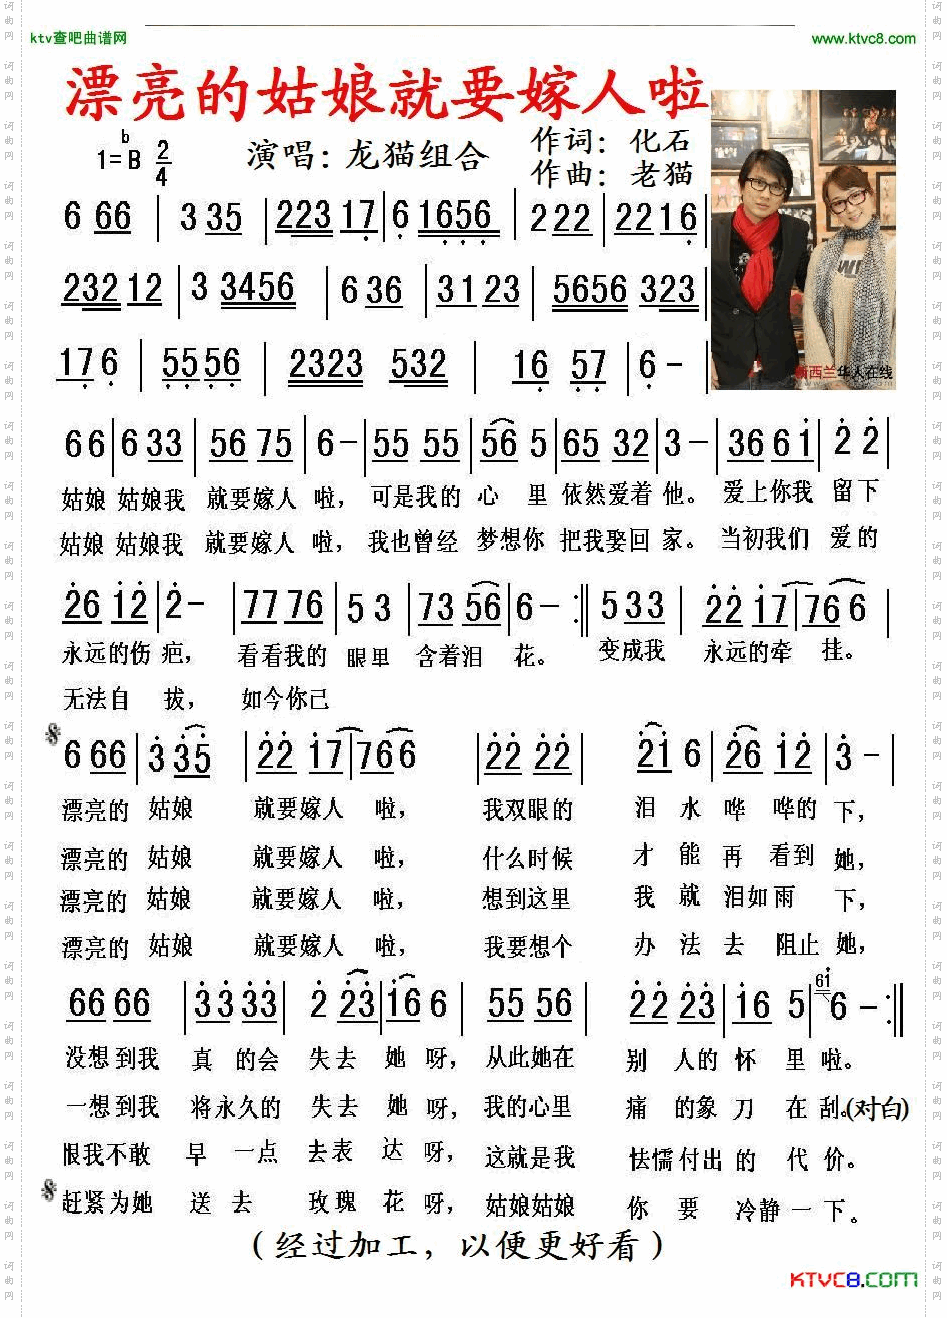 ktv查吧曲谱网 www.ktvc8.com
漂亮的姑娘就要嫁人啦
1=bB 2/4 演唱：龙猫组合 作词：化石
作曲：老猫
6 66 | 3 35 | 2231 7 | 6 1656 | 2 22 | 22 16 |
232 12 | 3 3456 | 6 36 | 31 23 | 5656 323 |
17 6 | 55 56 | 2323 532 | 16 57 | 6 - |
新西兰华人在线
66 | 6 33 | 56 75 | 6 - | 55 55 | 56 5 | 65 32 | 3 - | 36 61 | 2 2 |
姑娘 姑娘我 就要嫁人 啦，可是我的 心 里 依然爱着 他。 爱上你我 留下
姑娘 姑娘我 就要嫁人 啦，我也曾经 梦想你 把我娶回 家。当初我们 爱的
26 12 | 2 - | 77 76 | 5 3 | 73 56 | 6 - :| 5 33 | 22 17 | 76 6 |
永远的伤 疤， 看看我的 眼里 含着泪 花。 变成我 永远的牵 挂。
无法自 拔， 如今你已
6 66 | 3 35 | 22 17 | 766 | 22 22 | 21 6 | 26 12 | 3 - |
漂亮的 姑娘 就要嫁人 啦， 我双眼的 泪 水 哗 哗的 下，
漂亮的 姑娘 就要嫁人 啦， 什么时候 才 能 再 看到 她，
漂亮的 姑娘 就要嫁人 啦， 想到这里 我 就 泪如雨 下，
漂亮的 姑娘 就要嫁人 啦， 我要想个 办 法 去 阻止 她，
66 66 | 33 33 | 2 23 | 16 6 | 55 56 | 22 23 | 16 5 | 61 6 - :|
没想到我 真 的会 失去 她 呀，从此她在 别 人的 怀 里 啦。
一想到我 将永久的 失去 她 呀，我的心里 痛 的象 刀 在 刮。(对白)
恨我不敢 早 一点 去表 达 呀，这就是我 怯懦付出 的 代 价。
赶紧为她 送 去 玫瑰 花 呀，姑娘姑娘 你 要 冷静 一 下。
（经过加工，以便更好看）
KTVC8.COM